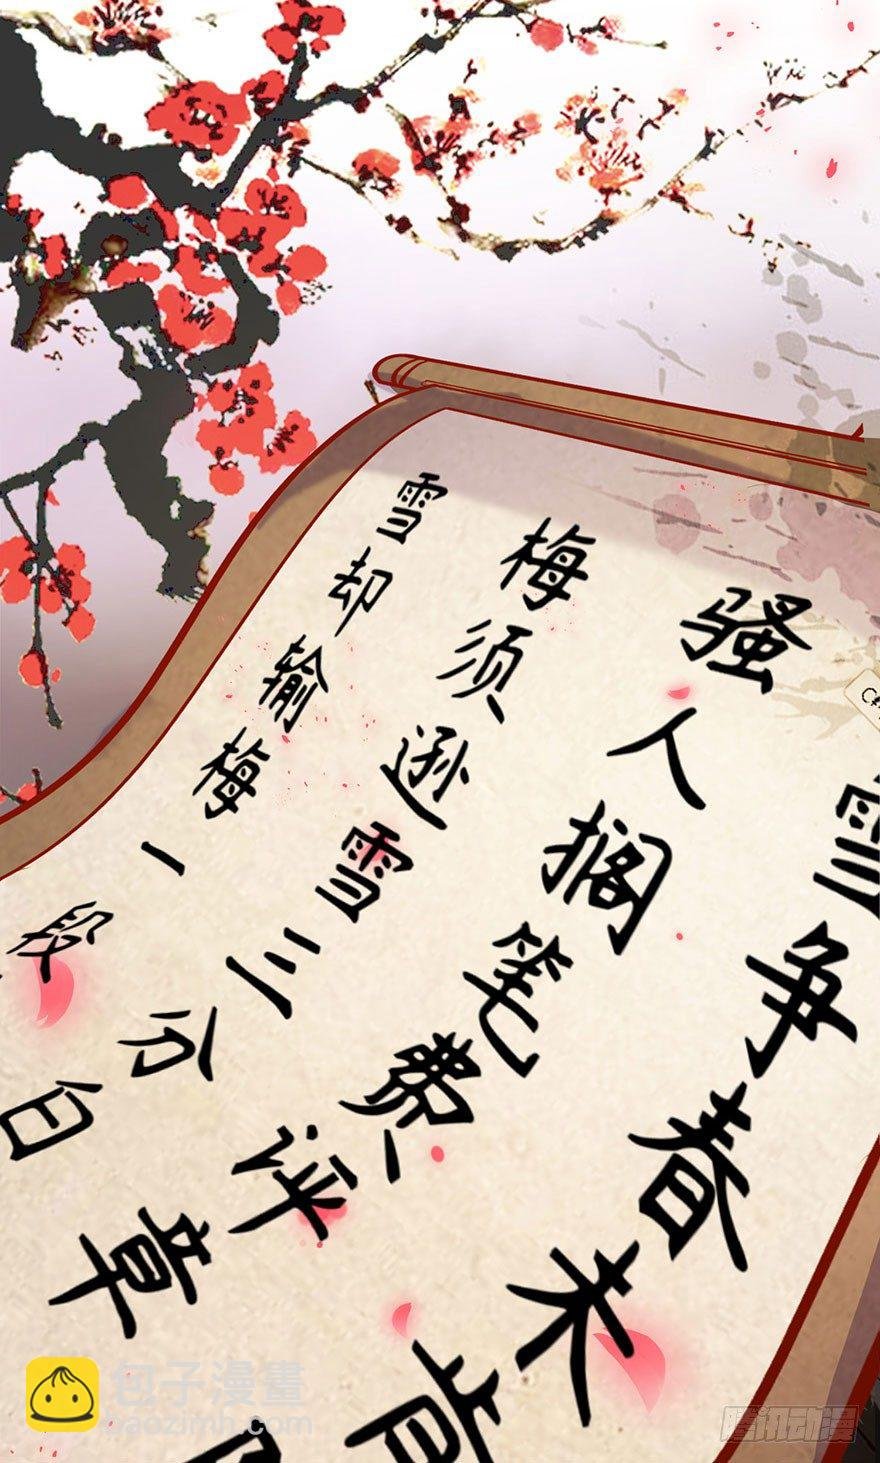 雪争春未肯
骚人搁笔费评章
梅须逊雪三分白
雪却输梅一段
包子漫畫
baozimh.com
腾讯动漫